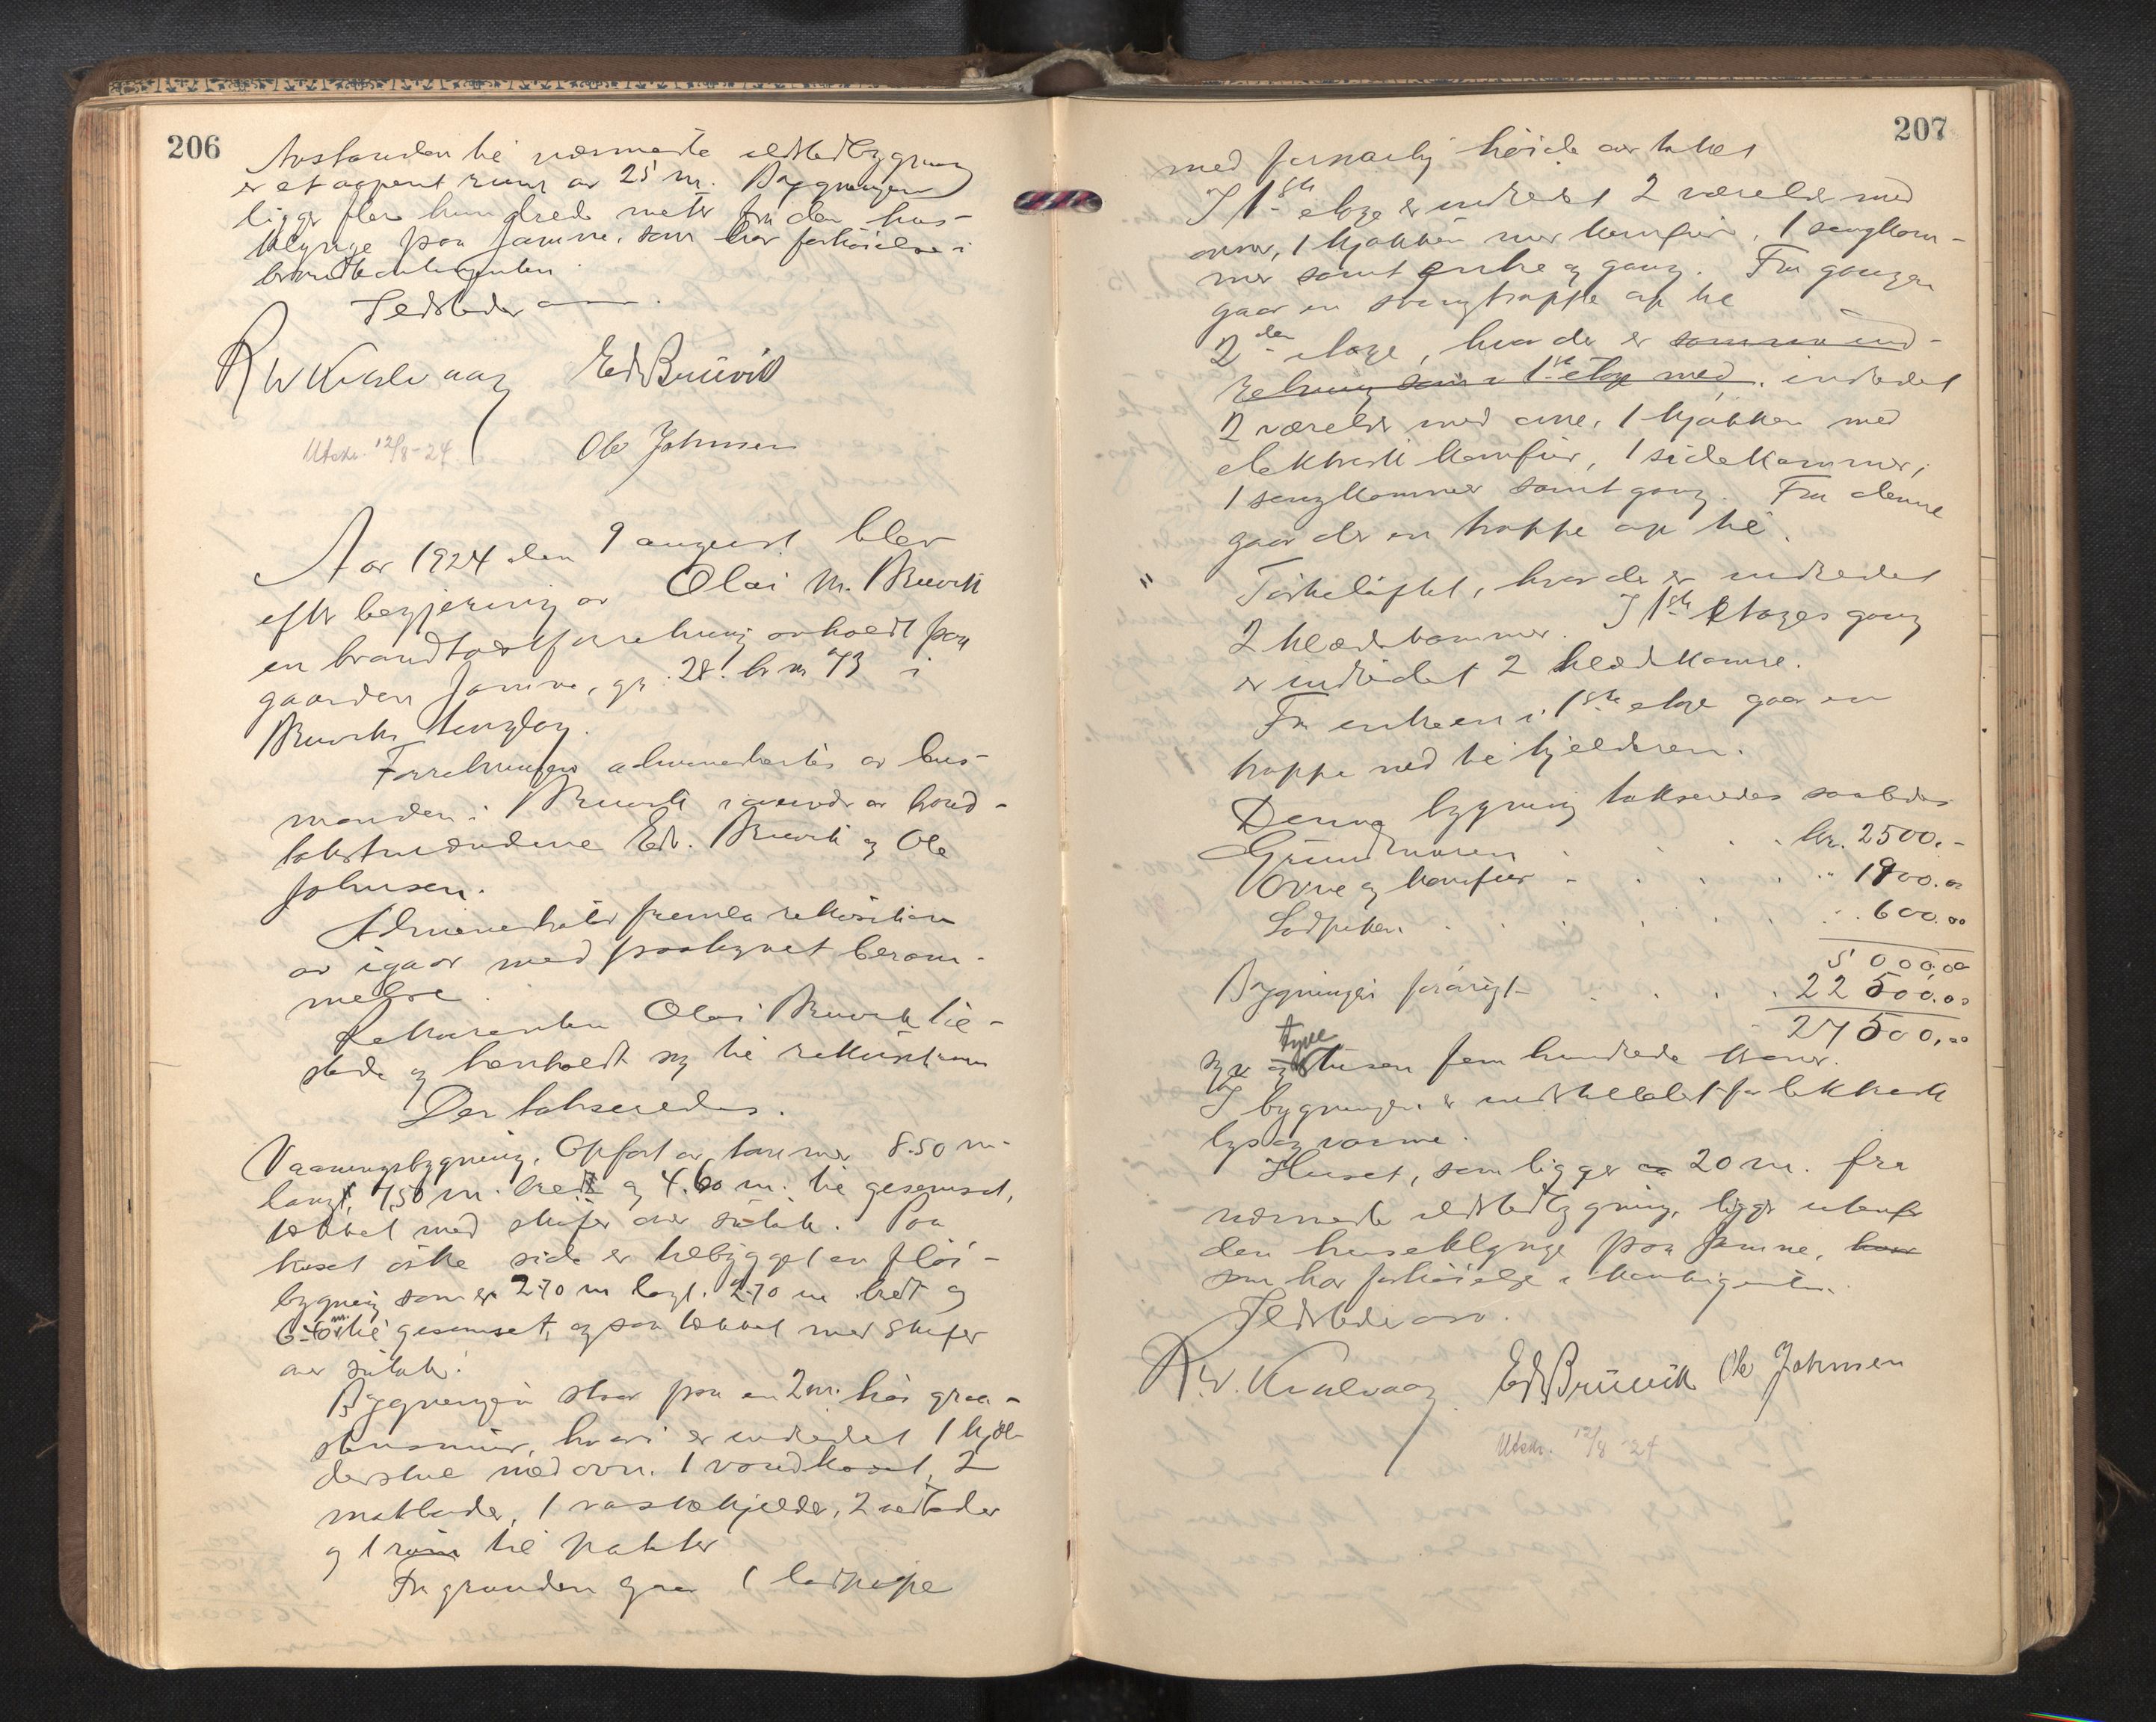 206
Avstanden til nærmeste ildstedbygning
er et aapent rum av 25 m. Bygningen
ligger flere hundrede meter fra den hus-
klynge paa Jamne, som har forhöielse i
brandkontingenten.
Ildsteder
R W Kvalvaag Ed Brüvik
Utskr. 12/8-24 Ole Johnsen
Aar 1924 den 9 august blev
efter begjering av Olai M. Bruvik
en brandtakstforretning avholdt paa
gaarden Jamne, gr. 28. br n 73 i
Bruvik tinglag.
Forretningen administrertes av lens-
manden i Bruvik i overvær av brand-
takstmændene Ed. Bruvik og Ole
Johnsen.
Administrator fremla rekvisition
av igaar med paategnet beram-
melse.
Rekvirenten Olai Bruvik til-
stede og henholdt sig til rekvisitionen
Der takseredes.
Vaaningsbygning. Opfört av tømmer 8.50 m.
langt, 7,50 m. bredt og 4.60 m. til gesemset,
tækket med skifer over sutak. Paa
huset östre side er tilbygget en flöi-
bygning som er 2.70 m langt. 2.70 m bredt og
6.40 m. til gesemset, ogsaa tækket med skifer
over sutak.
Bygningen staar paa en 2 m. höi graa-
stensmur, hvori er indredet 1 kjæl-
derstue med ovn. 1 vandkloset, 2
matboder, 1 vaskekjelder, 2 vedboder
og 1 rum til patater
Fra grunden gaar 1 lodpipe
207
med forsvarlig höide over taket
I 1ste etage er indredet 2 værelser med
ovner, 1 kjökken med komfur, 1 sengkam-
mer samt entre og gang. Fra gangen
gaar en svingtrappe op til
2den etage, hvor der er samme ind-
retning som i 1ste etage med, indredet
2 værelser med ovne, 1 kjökken med
elektrisk komfur, 1 sidekammer,
1 sengkammer samt gang. Fra denne
gaar der en trappe op til
" Törkeloftet, hvor der er indredet
2 klædekammer. I 1ste etages gang
er indredet 2 klædkamre.
Fra entreen i 1ste etage gaar en
trappe ned til kjelderen.
Denne bygning takseredes saaledes
Grundmuren . . . . kr. 2500.-
Ovne og komfur . . . . " 1900.00
Lodpiken . . . . . 600.00
5 000.00
Bygningen forövrigt . . . . 22 500.00
27 500,00
tyve
Syv og tusen fem hundrede kroner.
I bygningen er installeret for elektrisk
lys og varme.
Huset, som ligger ca 20 m. fra
nærmeste ildstedbygning, ligger utenfor
den huseklynge paa Jamne, hvor
som har forhöielse i kontingenten.
Ildsteder
R. W. Kvalvaag. Ed. Brüvik Ole Johnsen
Utskr. 12/8 24